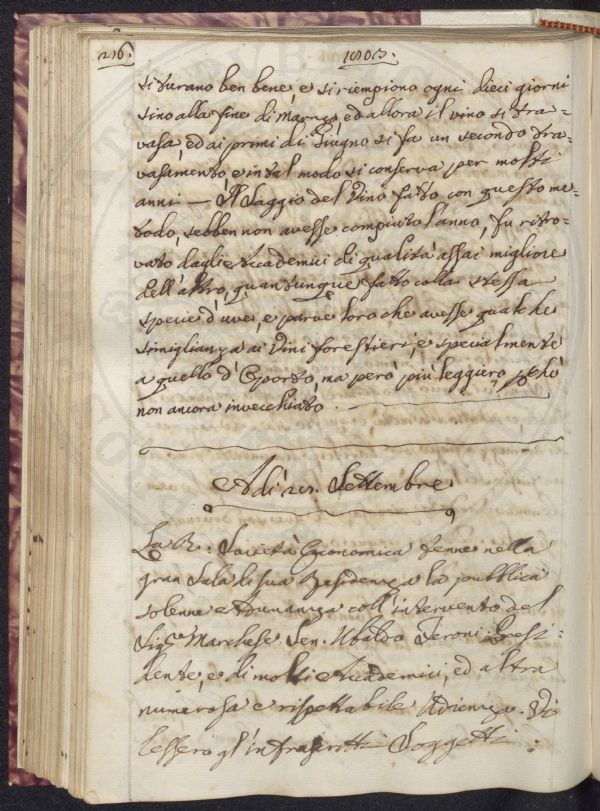 216. 1803.
si turano ben bene, e si riempiono ogni dieci giorni
sino alla fine di Marzo, ed allora il vino si tra=
vasa, ed ai primi di Giugno si fa un secondo tra
vasamento, e in tal modo si conserva per molti
anni — Il Saggio del Vino fatto con questo me=
todo, sebben non avesse compiuto l'anno, fu ritro=
vato dagli Accademici di qualità assai migliore
dell'altro, quantunque fatto colla stessa
specie d'uve, e parve loro che avesse qualche
simiglianza ai Vini forestieri, e specialmente
a quello d'Oporto, ma però più leggiero, pchè
non ancora invecchiato.
Adì Settembre
La R. Società Economica tenne nella
gran Sala di sua Residenza la pubblica
solenne Adunanza coll'intervento del
Sig.e Marchese Sen. Ubaldo Feroni Presi=
dente, e di molti Accademici, ed altra
numerosa e rispettabile Udienza. Vi
lessero gl'infrascritti Soggetti: